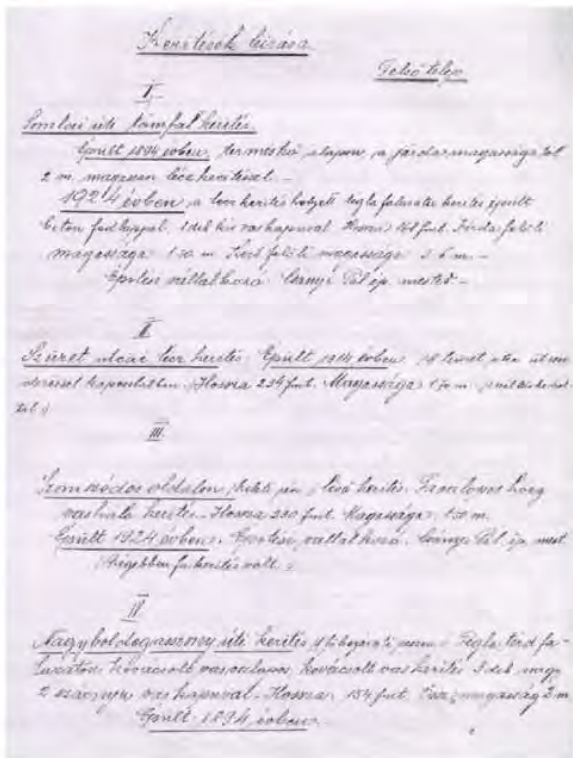 Kerítések leirása
Felső telep
I.
Somlói úti támfal kerités.
Épült 1894 évben, termeskő alapon, a járda magasságától
2 m. magasan lécz keritéssel. –
1924 évben, a lecz kerités helyett tegla falazatu kerités épült
beton fedlappal, 1 deb kis vaskapuval Hossza fm. Járda felöli
magassága 1.50 m. Kert felöli magassága m. –
Épitési vállalkozó Csernyi Pál ép. mester –
II.
Szüret utcai lecz kerités. Épült 1914 évben.
kapcsolatban. Hossza 234 fmt. Magassága 1.70 m.
III.
Szomszédos oldalon, keleti kerités. Faoszlopos horg.
vasháló kerités. Hossza 230 fmt. Magassága 1.50 m.
Épült 1924 évben. Épitési vállalkozó Pál ép. mest.
(Régebben fa kerités volt.)
IV.
Nagyboldogasszony úti kerités Tegla terd fa-
lazaton kovácsolt vasoszlopos kovácsolt vas kerités 3 deb nagy
2 szárnyu vas kapuval. Hossza 154 fmt. magasság 2 m
Épült 1894 évben. –